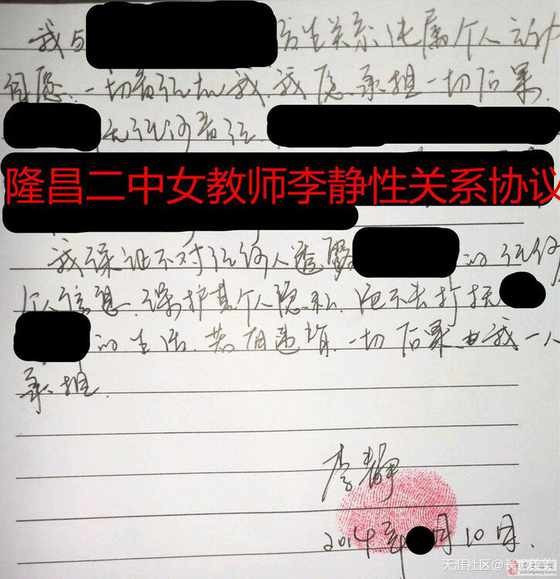 我与 发生关系,纯属个人
自愿、一切责任在我,我愿承担一切后果,
无任何责任
隆昌二中女教师李静性关系协议
我保证不对任何人透露 的任何
个人信息,保护其个人隐私,绝不去打扰
的生活。若有违背,一切后果由我一人
承担.
李静
2014年 月10日.
天涯社区@